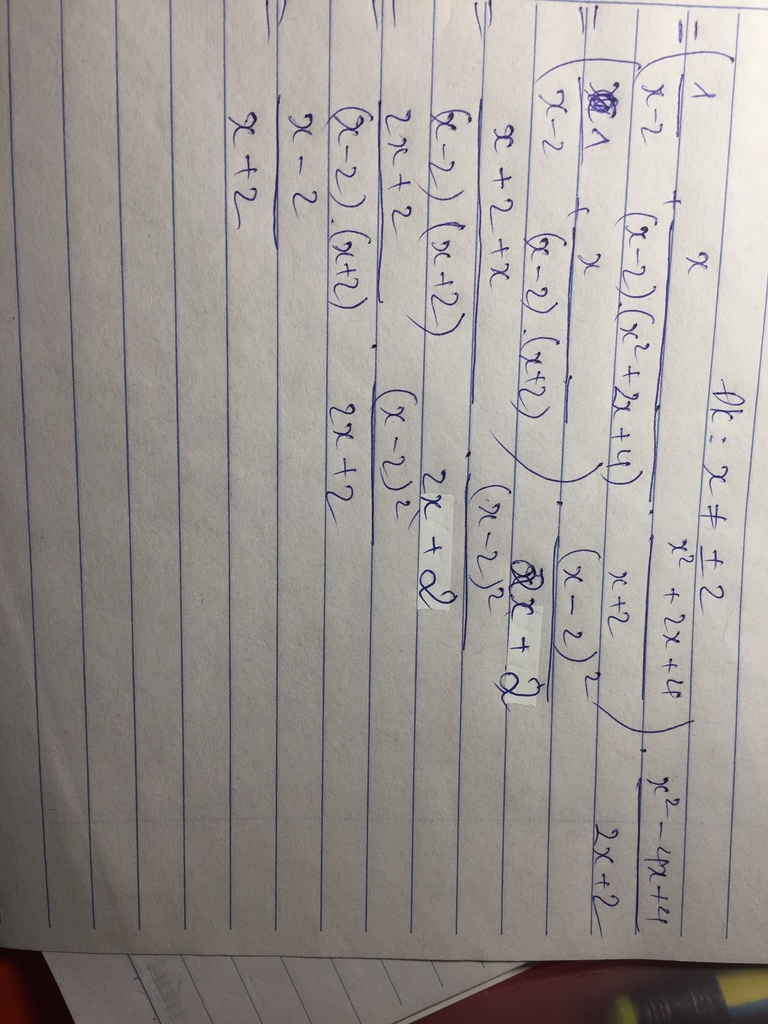 ĐK: x ≠ ± 2
= ( 1/(x-2) + x/((x-2).(x² + 2x + 4)) . (x² + 2x + 4)/(x+2) ) . (x² - 4x + 4)/(2x+2)
= ( 1/(x-2) + x/((x-2).(x+2)) ) . (x-2)²/(2x + 2)
= (x + 2 + x)/((x-2)(x+2)) . (x-2)²/(2x + 2)
= (2x + 2)/((x-2).(x+2)) . (x-2)²/(2x+2)
= (x - 2)/(x + 2)